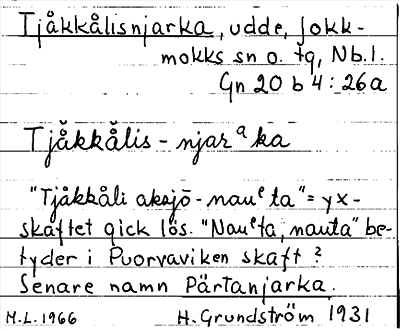 Tjåkkålisnjarka, udde, Jokk-
mokks sn o. tg, Nb.l.
Gn 20 b 4 : 26a
Tjåkkålis - njarᵃka
"Tjåkkåli aksjo - nauᵉta" = yx-
skaftet gick lös. "Nauᵉta, nauta" be-
tyder i Puorvaviken skaft ?
Senare namn Pärtanjarka.
M.L. 1966 H. Grundström 1931